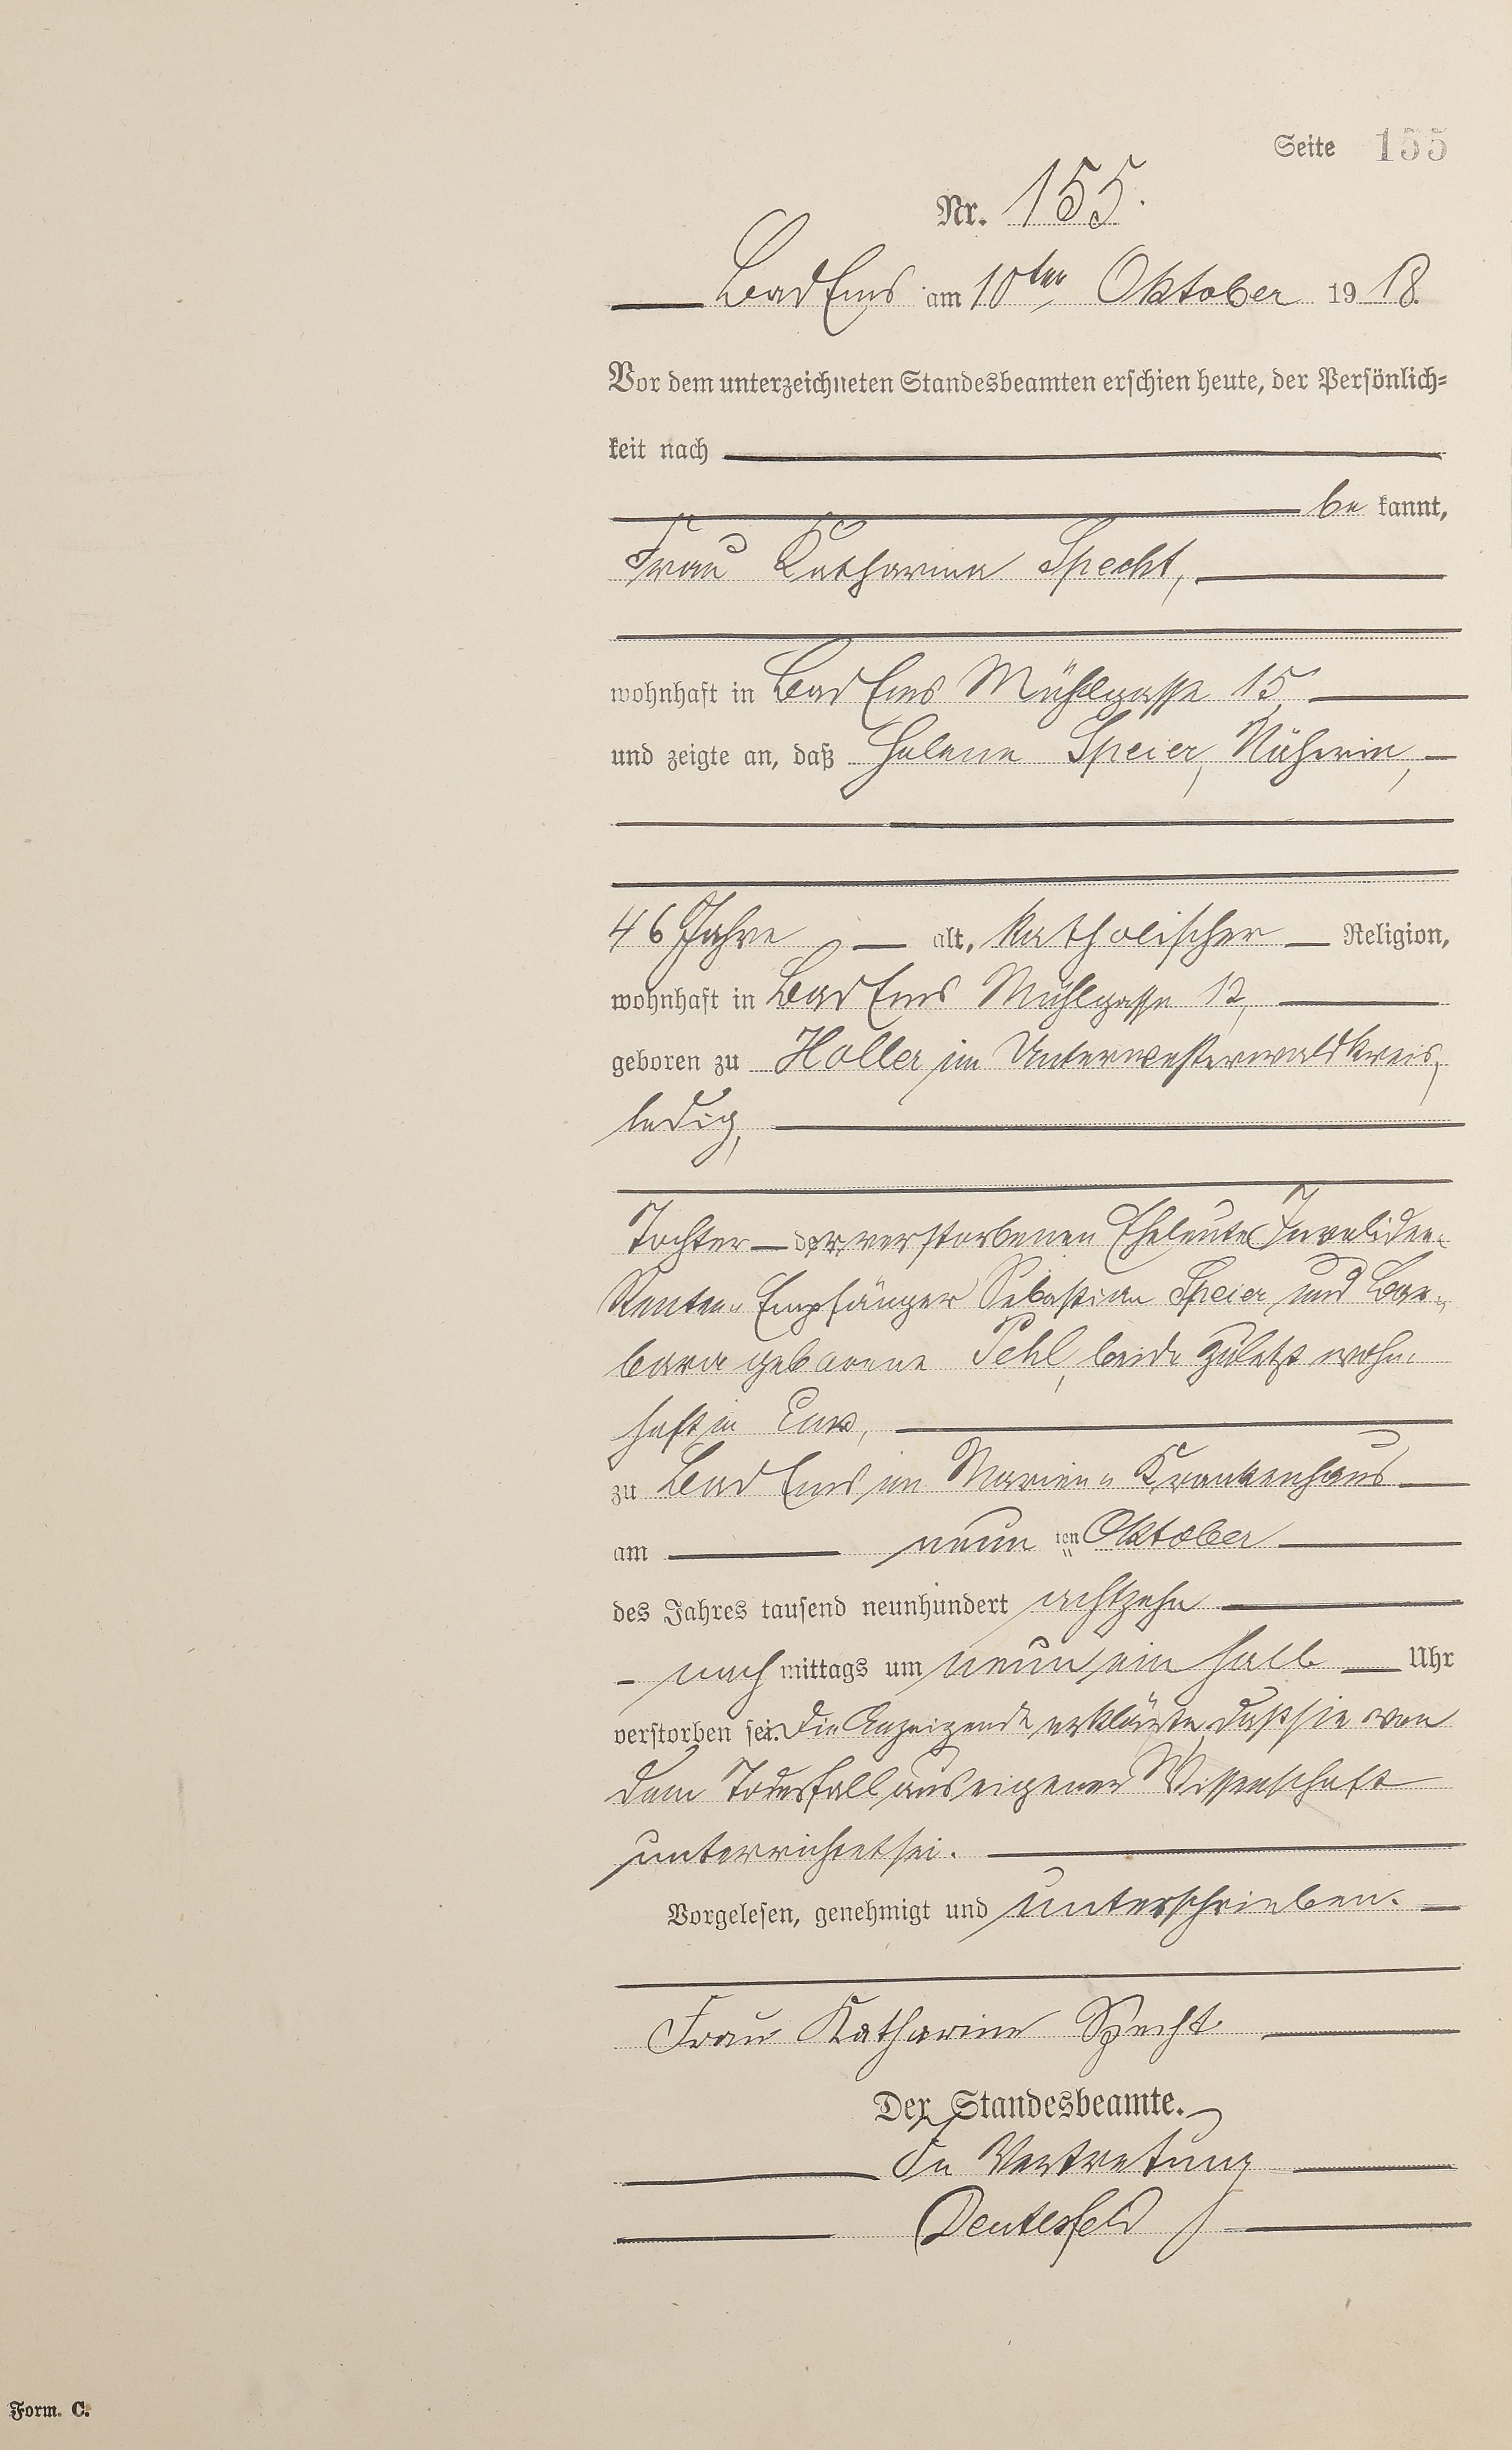 Seite 155
Nr. 155.
Bad Ems am 10ten Oktober 1918.
Vor dem unterzeichneten Standesbeamten erschien heute, der Persönlich-
keit nach
be kannt,
Frau Katharina Specht,
wohnhaft in Bad Ems Mühlgasse 15
und zeigte an, daß Helene Speier, Näherin,
46 Jahre alt, katholischer Religion,
wohnhaft in Bad Ems Mühlgasse 12,
geboren zu Holler im Unterwesterwaldkreis,
ledig,
Tochter der verstorbenen Eheleute Invaliden-
Renten-Empfänger Sebastian Speier und Bar-
bara geborene Pehl, beide zuletzt wohn-
haft in Ems,
zu Bad Ems im Marien-Krankenhaus
am neun ten Oktober
des Jahres tausend neunhundert achtzehn
nach mittags um neun ein halb Uhr
verstorben sei. Die Anzeigende erklärte, daß sie von
dem Todesfall aus eigener Wissenschaft
unterrichtet sei.
Vorgelesen, genehmigt und unterschrieben.
Frau Katharina Specht
Der Standesbeamte.
In Vertretung
Form. C.